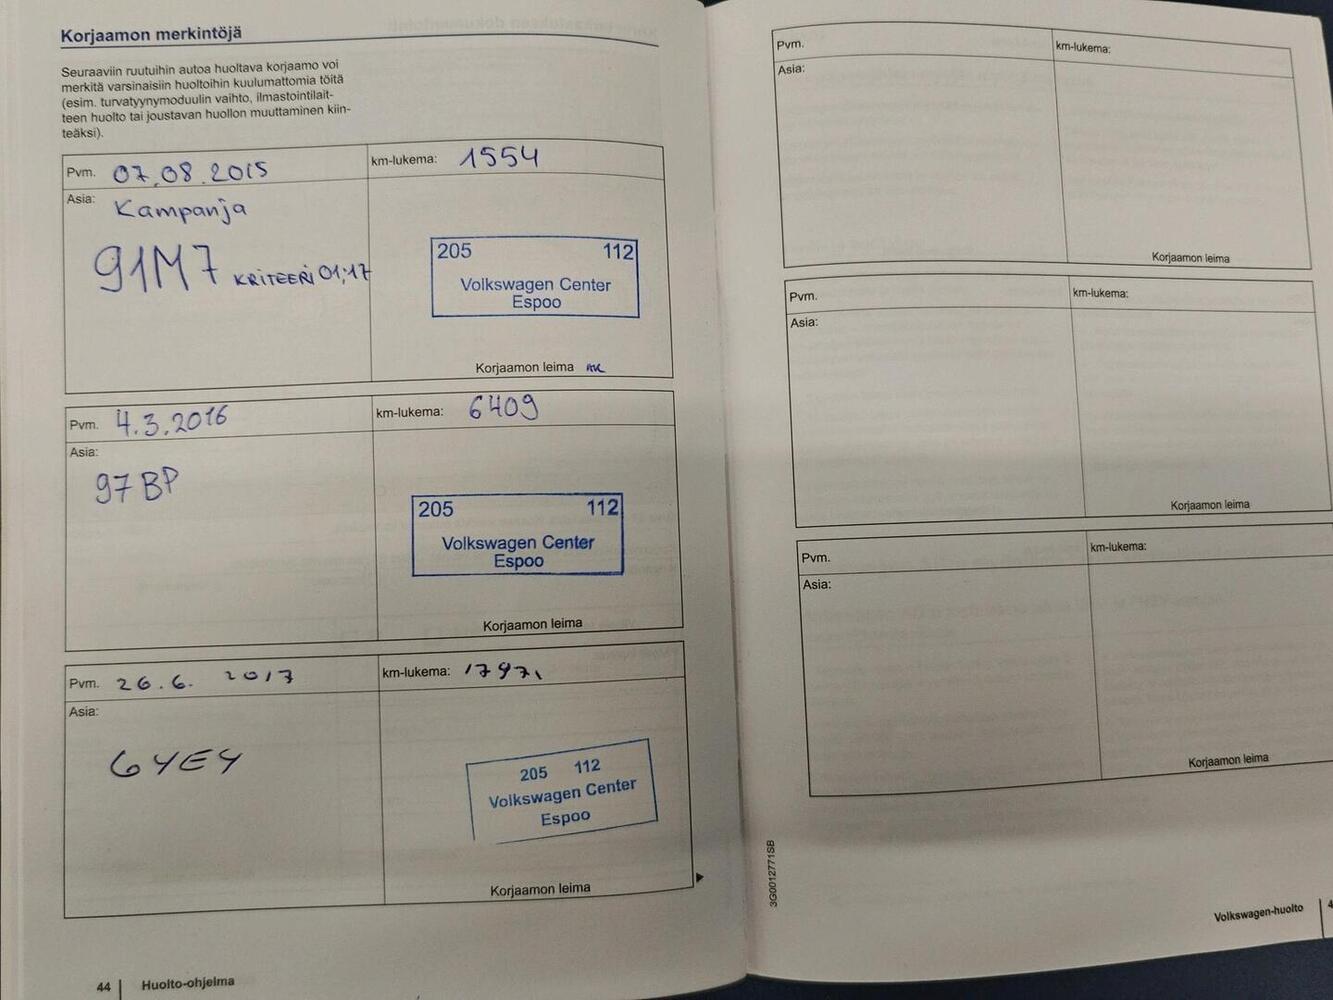 Korjaamon merkintöjä
Seuraaviin ruutuihin autoa huoltava korjaamo voi
merkitä varsinaisiin huoltoihin kuulumattomia töitä
(esim. turvatyynymoduulin vaihto, ilmastointilait-
teen huolto tai joustavan huollon muuttaminen kiin-
teäksi).
Pvm. 07.08.2015 km-lukema: 1554
Asia: Kampanja
91M7 KRITEERI 01;17
205 112
Volkswagen Center
Espoo
Korjaamon leima
Pvm. 4.3.2016 km-lukema: 6409
Asia:
97BP
205 112
Volkswagen Center
Espoo
Korjaamon leima
Pvm. 26.6. 2017 km-lukema:
Asia:
205 112
Volkswagen Center
Espoo
Korjaamon leima
44 Huolto-ohjelma
Pvm. km-lukema:
Asia:
Korjaamon leima
Pvm. km-lukema:
Asia:
Korjaamon leima
Pvm. km-lukema:
Asia:
Korjaamon leima
3G0012771SB
Volkswagen-huolto